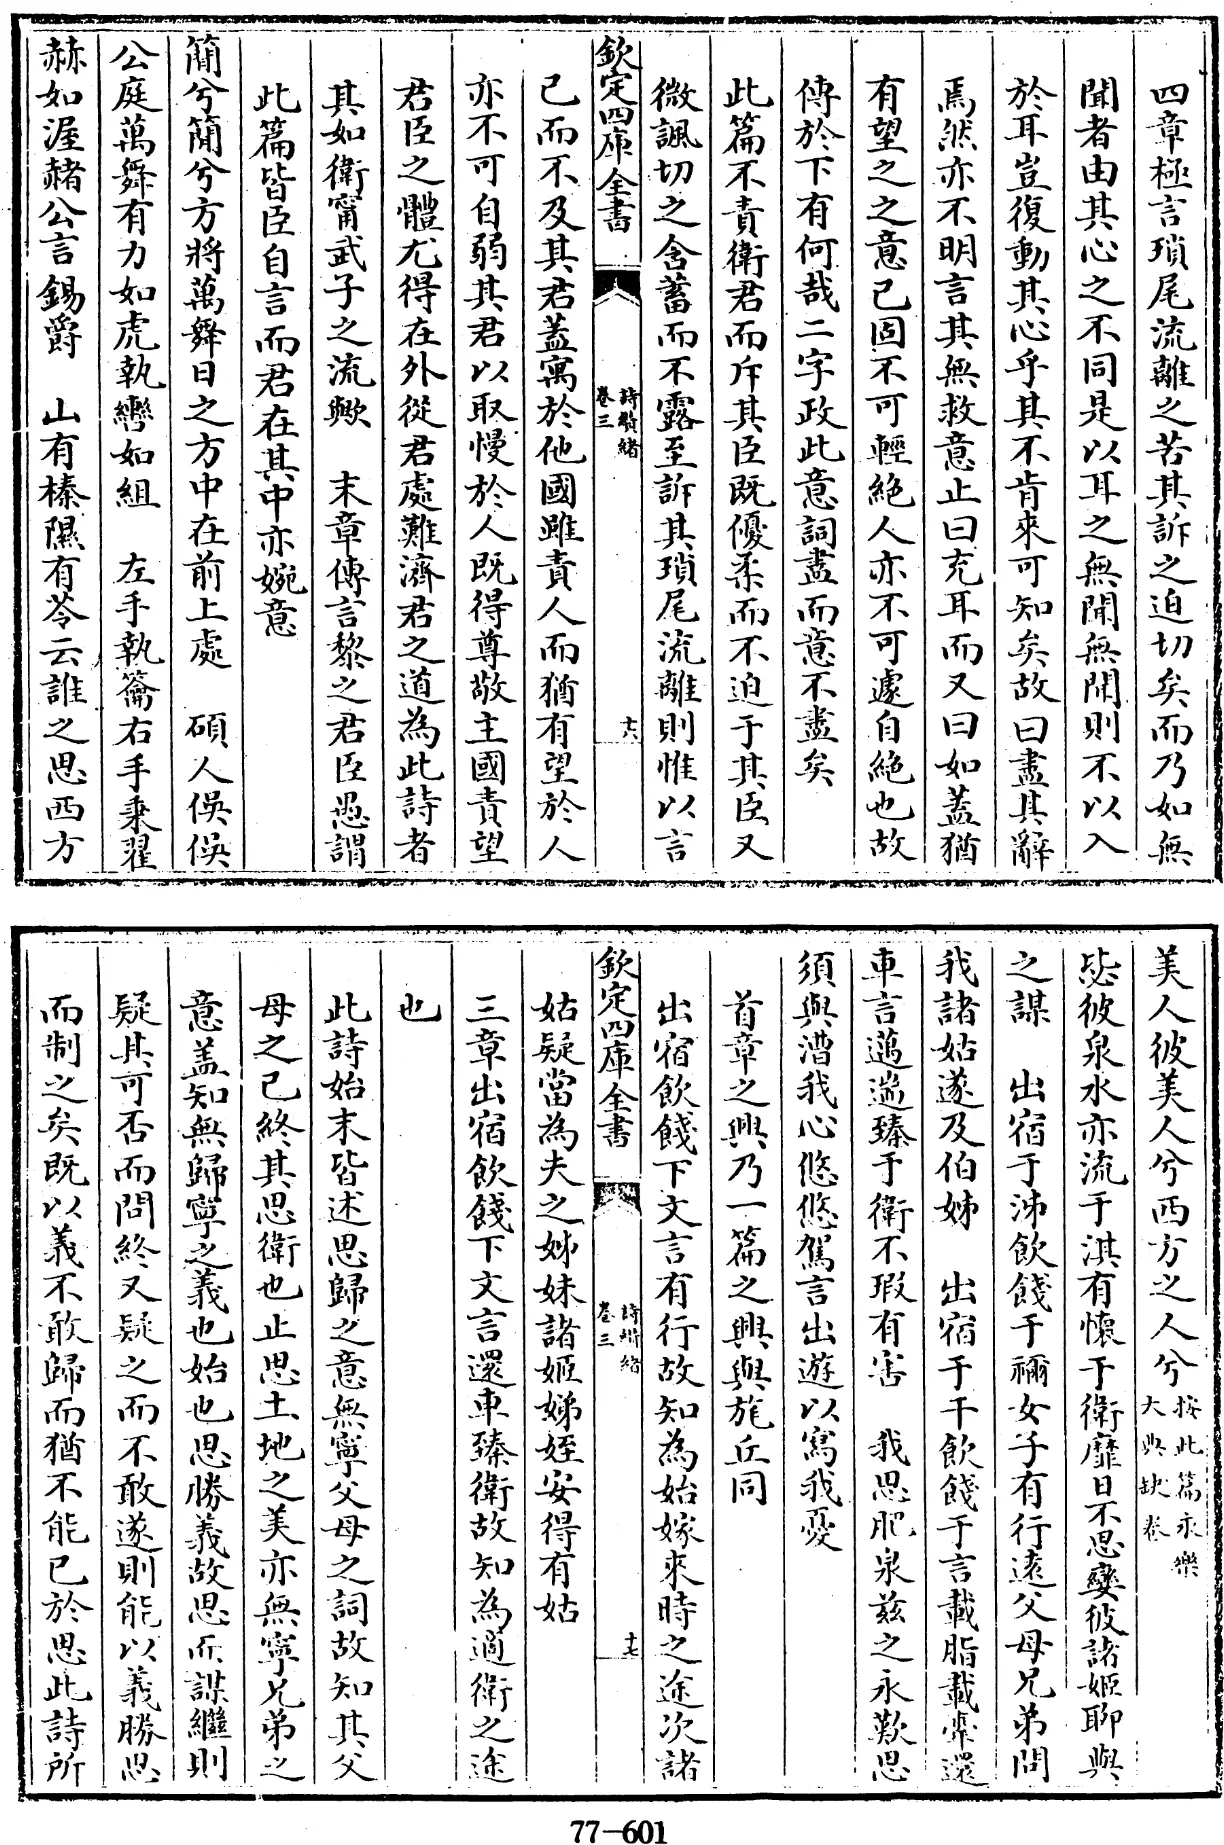 四章極言瑣尾流離之苦其訴之迫切矣而乃如無
聞者由其心之不同是以耳之無聞無聞則不以入
於耳豈復動其心乎其不肯來可知矣故曰盡其辭
焉然亦不明言其無救意止曰充耳而又曰如蓋猶
有望之之意已固不可輕絶人亦不可遽自絶也故
傳於下有何哉二字政此意詞盡而意不盡矣
此篇不責衛君而斥其臣既優柔而不迫于其臣又
微諷切之含蓄而不露至訴其瑣尾流離則惟以言
欽定四庫全書
詩纘緒
卷三
十六
已而不及其君蓋寓於他國雖責人而猶有望於人
亦不可自弱其君以取慢於人既得尊敬主國責望
君臣之體尤得在外從君處難濟君之道為此詩者
其如衛甯武子之流歟 末章傳言黎之君臣愚謂
此篇皆臣自言而君在其中亦婉意
簡兮簡兮方將萬舞日之方中在前上處 碩人俁俁
公庭萬舞有力如虎執轡如組 左手執籥右手秉翟
赫如渥赭公言錫爵 山有榛隰有苓云誰之思西方
美人彼美人兮西方之人兮按此篇永樂
大典缺卷
毖彼泉水亦流于淇有懷于衛靡日不思孌彼諸姬聊與
之謀 出宿于泲飲餞于禰女子有行遠父母兄弟問
我諸姑遂及伯姊 出宿于干飲餞于言載脂載舝還
車言邁遄臻于衛不瑕有害 我思肥泉茲之永歎思
須與漕我心悠悠駕言出遊以寫我憂
首章之興乃一篇之興與旄丘同
出宿飲餞下文言有行故知為始嫁來時之途次諸
欽定四庫全書
詩纘緒
卷三
十七
姑疑當為夫之姊妹諸姬娣姪安得有姑
三章出宿飲餞下文言還車臻衛故知為適衛之途
也
此詩始末皆述思歸之意無寧父母之詞故知其父
母之已終其思衛也止思土地之美亦無寧兄弟之
意蓋知無歸寧之義也始也思勝義故思而謀繼則
疑其可否而問終又疑之而不敢遂則能以義勝思
而制之矣既以義不敢歸而猶不能已於思此詩所
77—601